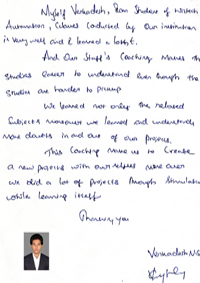 Myself Venkadesh, from Student of
Automation, Classes Conducted by Our institution
is very well and I learned a lot.
And Our Staff's Coaching makes the
studies easier to understand even though the
studies are harder to
We learned not only the related
Subjects moreover we learned and understands
more in and out of our Projects.
This Coaching makes us to Create
a new projects with our selves
we did a lot of projects through Simulation
while learning itself
Thanking you